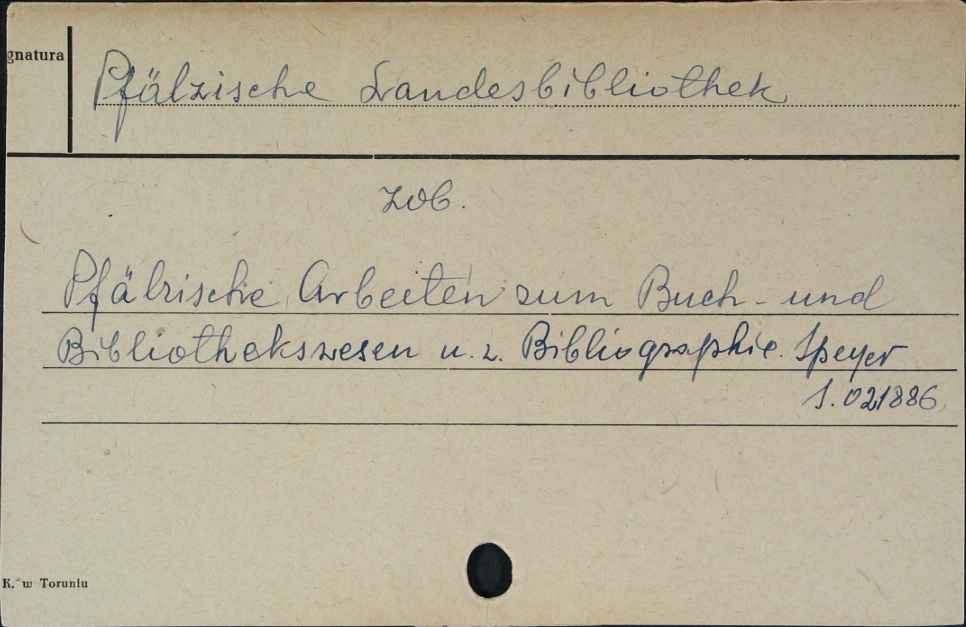 gnatura
Pfälzische Landesbibliothek
zob.
Pfälzische Arbeiten zum Buch- und
Bibliothekswesen u. z. Bibliographie. Speyer
S. 021886
K. w Toruniu